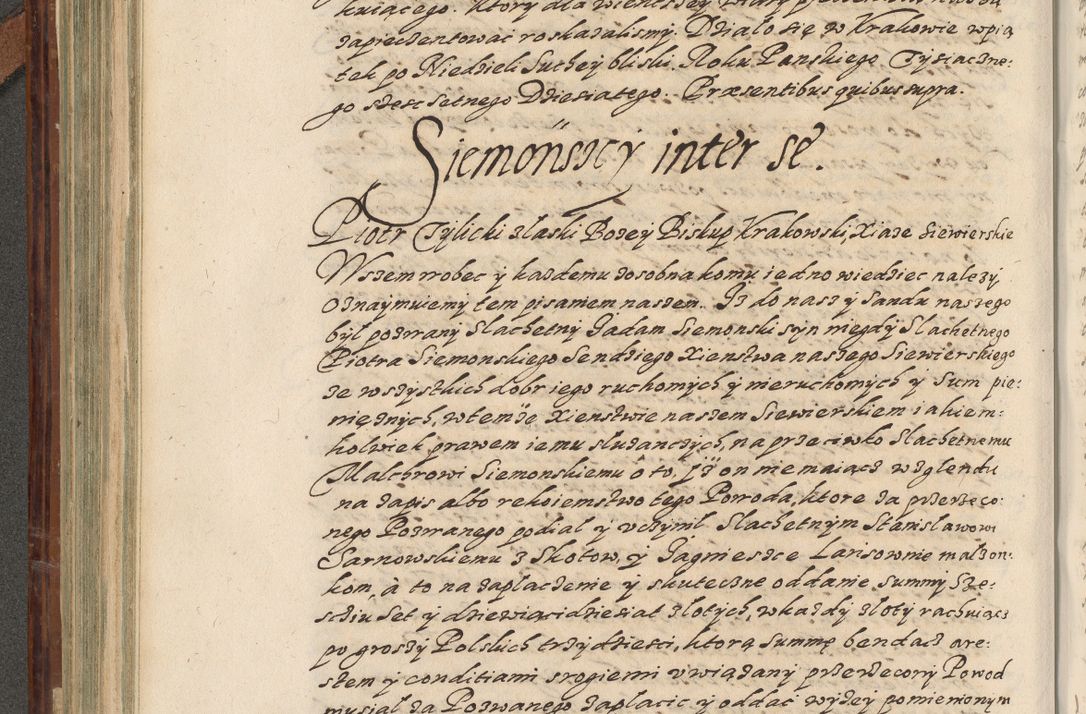 kuiącego. Ktory dla wientszey wiary
zapieczentować roskazalismy. Działo się w Krakowie wpią
tek po Niedzieli Suchey bliski. Roku Panskiego Tysiaczne-
go szesc setnego Dziesiatego. Præsentibus quibus supra.
Siemońsscy inter se.
Piotr Tylicki zlaski Bozey Biskup Krakowski, Xiaze Siewierskie
Wszem wobec y kazdemu zosobna komu iedno wiedziec nalezy
Oznaymuiemy tem pisaniem naszem. Iz do nasz y Sandu naszego
był pozwany Slachetny Jadam Siemonski syn niegdy Slachetnego
Piotra Siemonskiego Sendziego Xienstwa naszego Siewierskiego
ze wszystkich dobr iego ruchomych y nieruchomych y Sum pie-
nięznych, wtemze Xienstwie naszem Siewierskiem iakiem-
kolwiek prawem iemu sluzanczych, naprzeciwko Slachetnemu
Malchrowi Siemonskiemu o to, Jz on nie maiącz wzglendu
na zapis albo rekoiemstwo tego Powoda, ktore za przerzeco-
nego Pozwanego podial y vczynił Slachetnym Stanislawowi
Sarnowskiemu z Skotow, y Jagniesce Larisownie malzon-
kom, à to na zaplaczenie y skuteczne oddanie Summy Sze-
sciu Set y dziewiącidziesiat zlotych, wkazdy zloty rachuiącz
po groszy Polskich trzydziesci, ktorą Summę bendacz are-
sztem y conditiami srogiemi vwiązany przerzecony Powod
musial za Pozwanego zaplacic y oddać wyzey pomienionym